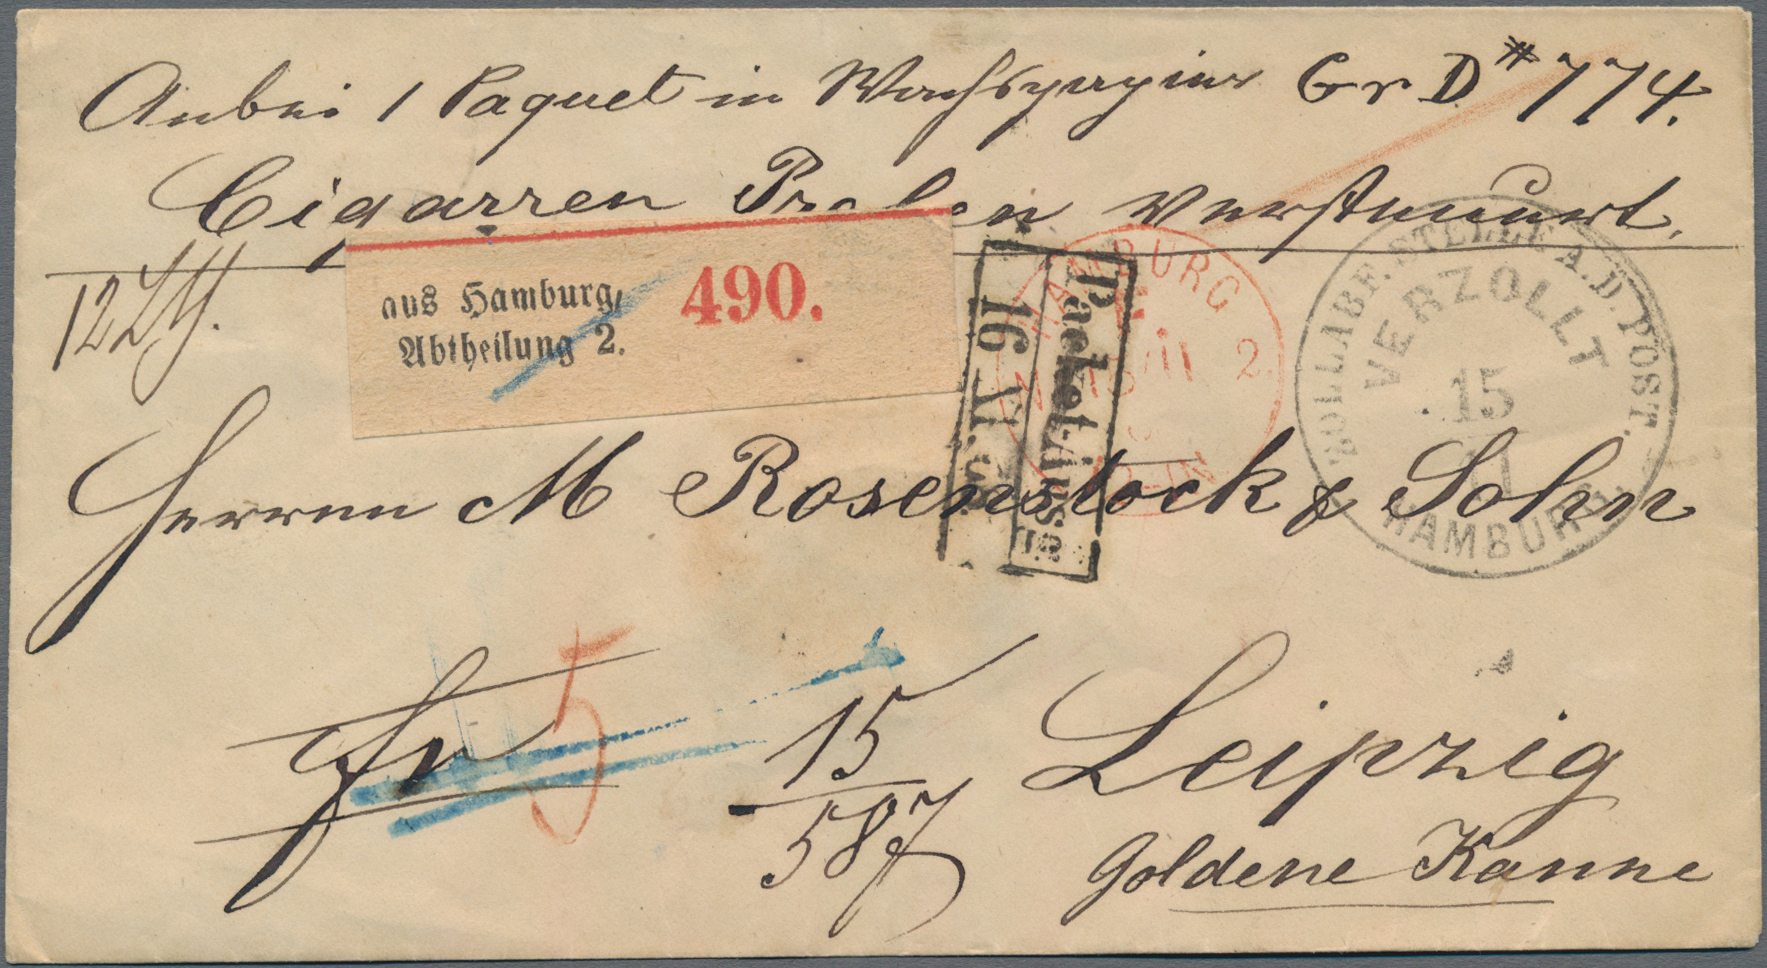 Anbei 1 Paquet in Wachspapier Gr D # 774.
Cigarren Proben versteuert.
aus Hamburg,
Abtheilung 2.
490.
HAMBURG
2.
Packet-Auss
16 XI.
ZOLLABF. STELLE A. D. POST.
VERZOLLT
15
11
HAMBURG
Herren M Rosenstock & Sohn
5
15
587
Leipzig
Goldene Kanne